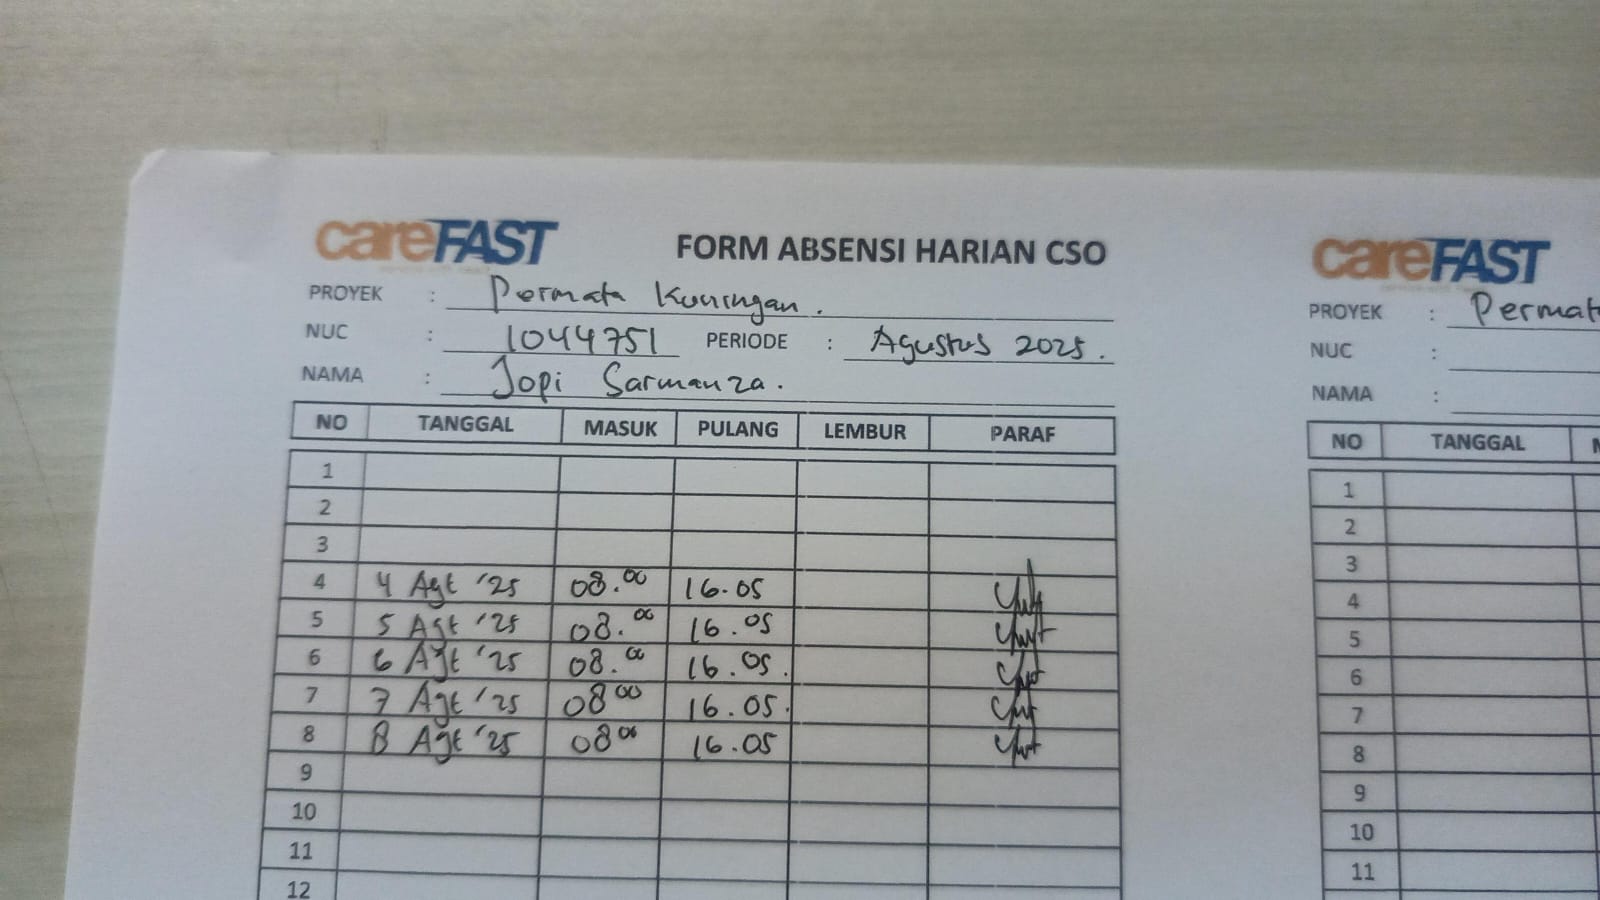 careFAST
FORM ABSENSI HARIAN CSO
PROYEK : Permata Kuningan.
NUC : 1044751 PERIODE : Agustus 2025.
NAMA : Jopi Sarmanza.
NO TANGGAL MASUK PULANG LEMBUR PARAF
1
2
3
4 4 Agt '25 08.00 16.05
5 5 Agt '25 08.00 16.05
6 6 Agt '25 08.00 16.05.
7 7 Agt '25 08 00 16.05.
8 8 Agt '25 08 00 16.05
9
10
11
12
careFAST
PROYEK : Permat
NUC :
NAMA :
NO TANGGAL M
1
2
3
4
5
6
7
8
9
10
11